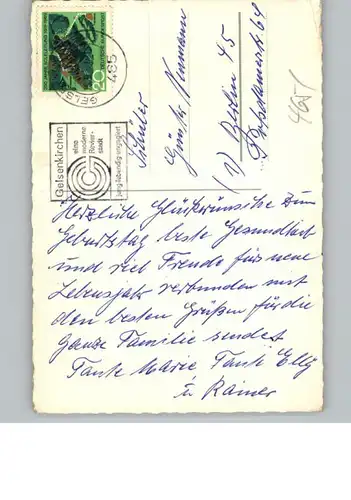 GELS
465
20
Gelsenkirchen
eine
moderne
Revier-
stadt
jung-lebendig-engagiert
Schüler
Günter Neumann
(1) Berlin 45
Potsdamerstr 64
465/
Herzliche Glückwünsche zum
Geburtstag beste Gesundheit
und viel Freude fürs neue
Lebensjahr verbunden mit
den besten Grüßen für die
Ganze Familie sendet
Tante Marie Tante Elly
u Rainer